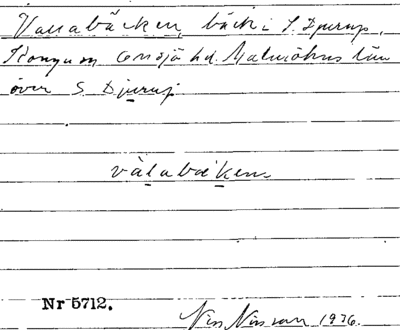 Vallabäcken, bäck i S. Djurup,
Konga sn Onsjö hd. Malmöhus län
över S Djurup
vàlabäken
Nr 5712.
Nils Nilsson 1936.